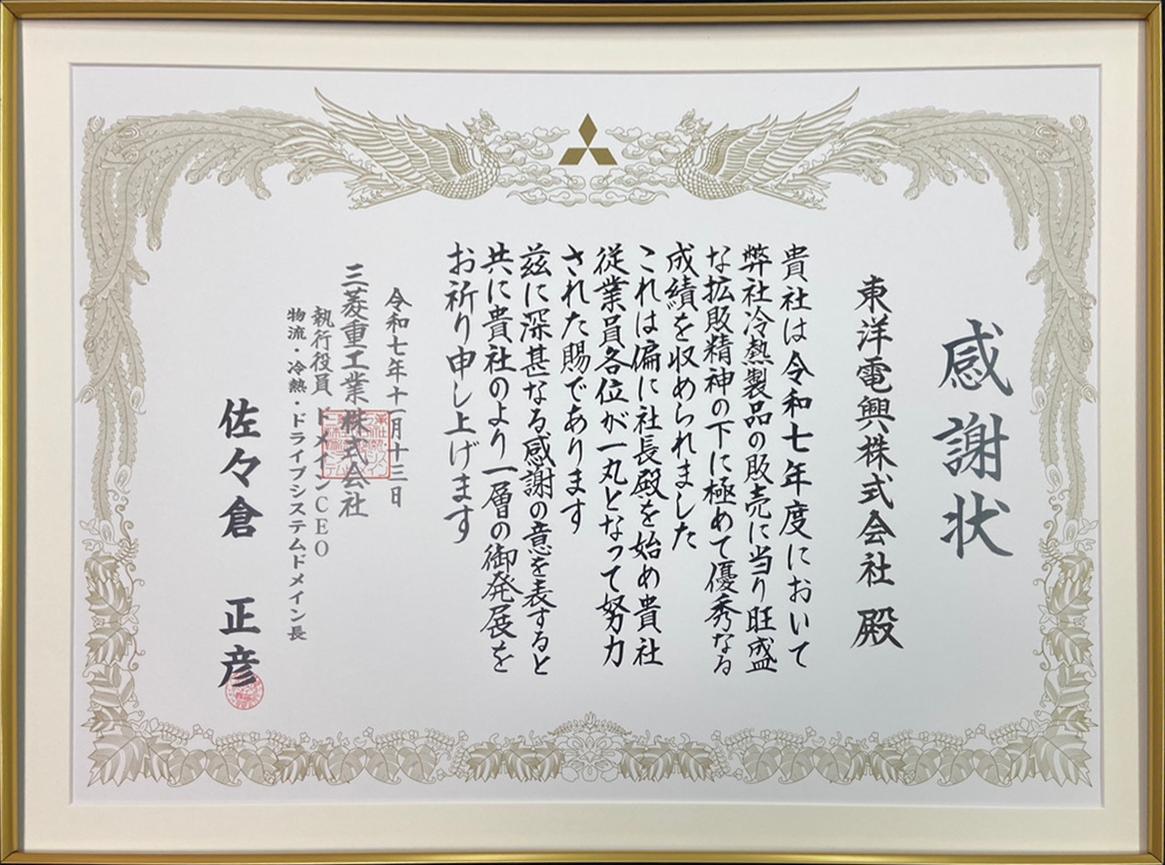 感謝状
東洋電興株式会社 殿
貴社は令和七年度において
弊社冷熱製品の販売に当り旺盛
な拡販精神の下に極めて優秀なる
成績を収められました
これは偏に社長殿を始め貴社
従業員各位が一丸となって努力
された賜であります
茲に深甚なる感謝の意を表すると
共に貴社のより一層の御発展を
お祈り申し上げます
令和七年十一月十三日
三菱重工業株式会社
執行役員 ドメインCEO
物流・冷熱・ドライブシステムドメイン長
佐々倉 正彦